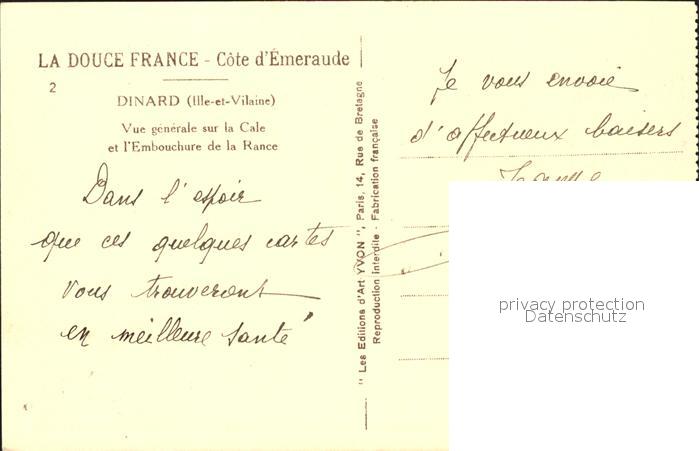 LA DOUCE FRANCE - Côte d'Émeraude
2
DINARD (Ille-et-Vilaine)
Vue générale sur la Cale
et l'Embouchure de la Rance
Dans l'espoir
que ces quelques cartes
vous trouveront
en meilleure santé
" Les Editions d'Art YVON ", Paris, 14, Rue de Bretagne
Reproduction interdite - Fabrication française
Je vous envoie
d'affectueux baisers
privacy protection
Datenschutz